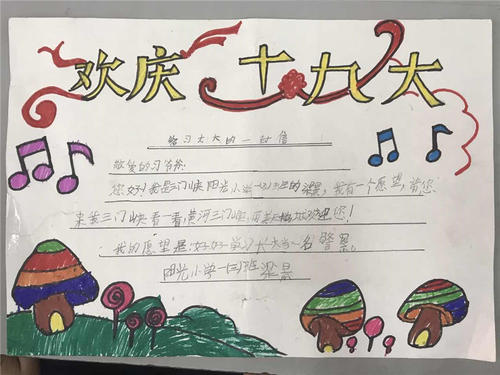 欢庆 十九大
给习大大的一封信
敬爱的习爷爷:
您好!我是三门峡阳光小学一(3)班的梁景,我有一个愿望,请您
来我三门峡看一看,黄河三门峡,迎您!
我的愿望是:好好学习长大当一名警察。
阳光小学一(3)班 梁景